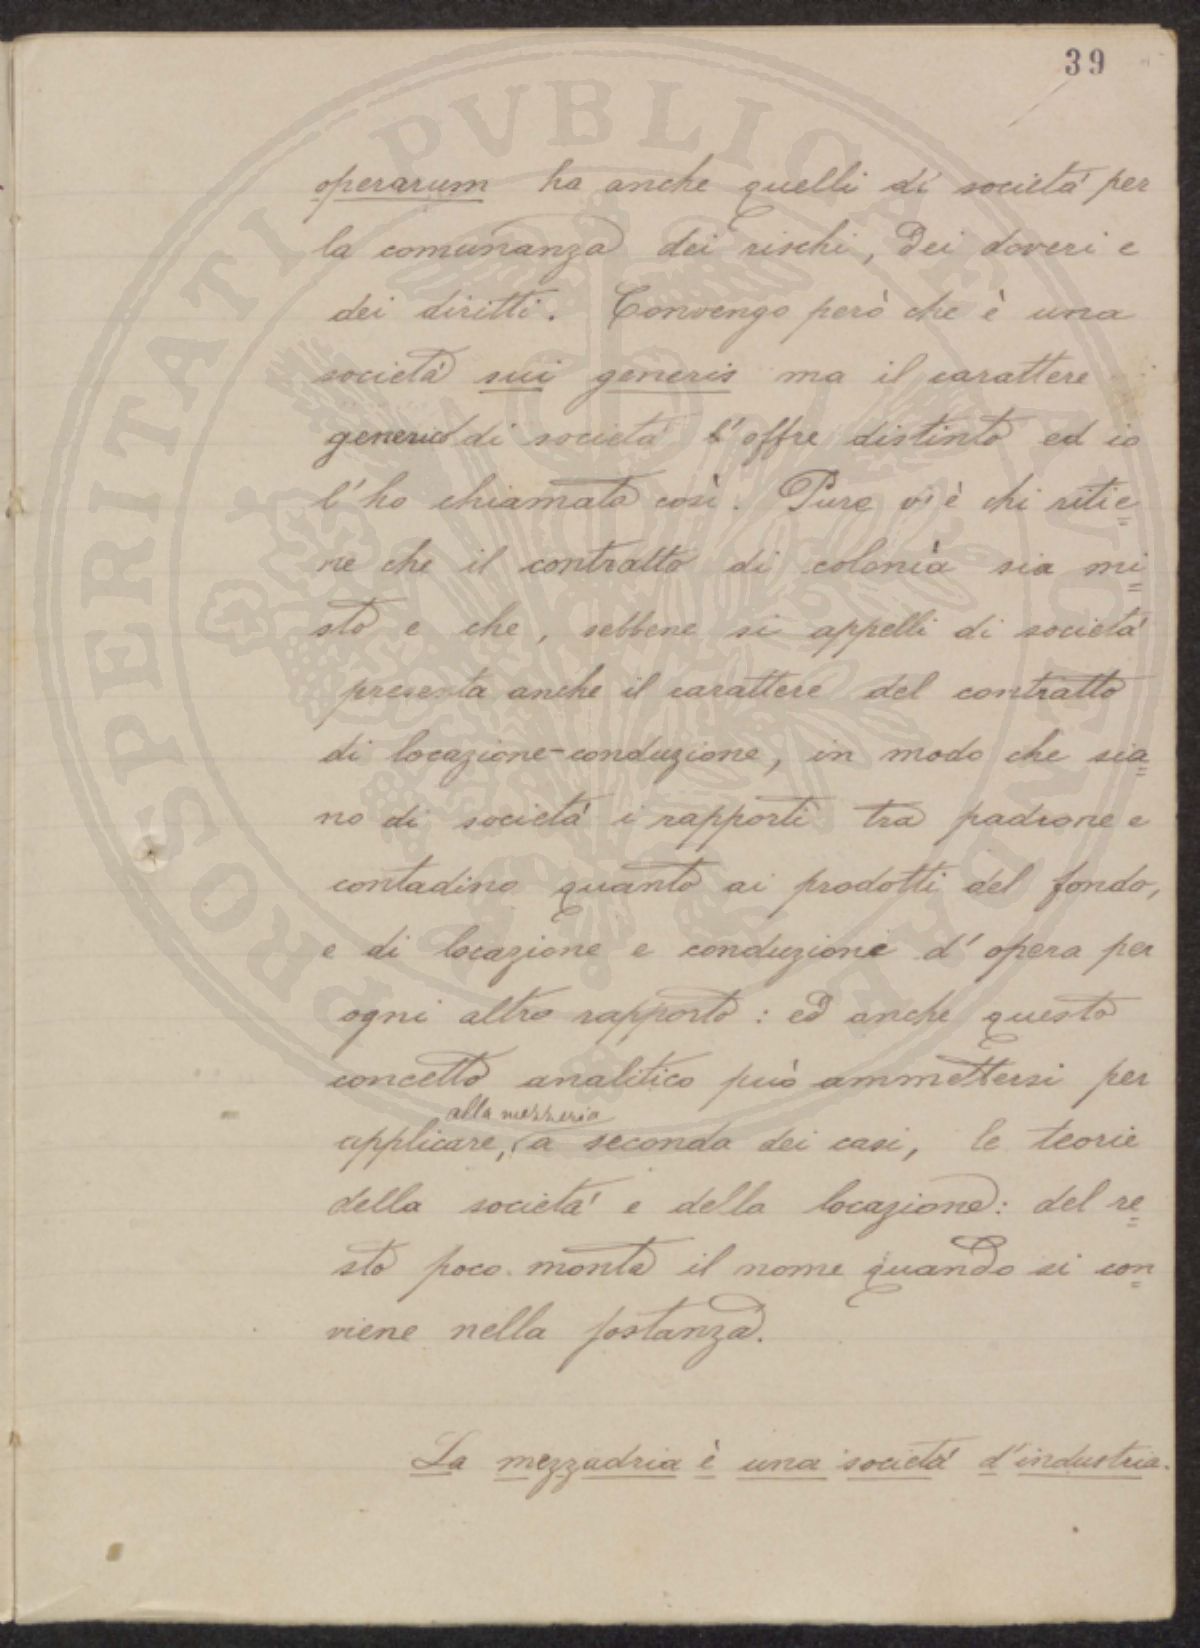 39
operarum ha anche quelli di società per
la comunanza dei rischi, dei doveri e
dei diritti. Convengo però che è una
società sui generis ma il carattere
generico di società l'offre distinto ed io
l'ho chiamata così. Pure vi è chi ritie=
ne che il contratto di colonìa sia mi=
sto e che, sebbene si appelli di società
presenta anche il carattere del contratto
di locazione-conduzione, in modo che sia=
no di società i rapporti tra padrone e
contadino quanto ai prodotti del fondo,
e di locazione e conduzione d'opera per
ogni altro rapporto: ed anche questo
concetto analitico può ammettersi per
alla mezzeria
applicare, a seconda dei casi, le teorie
della società e della locazione: del re=
sto poco monta il nome quando si con=
viene nella sostanza.
La mezzadria è una società d'industria.
PROSPERITATI PVBLICAE